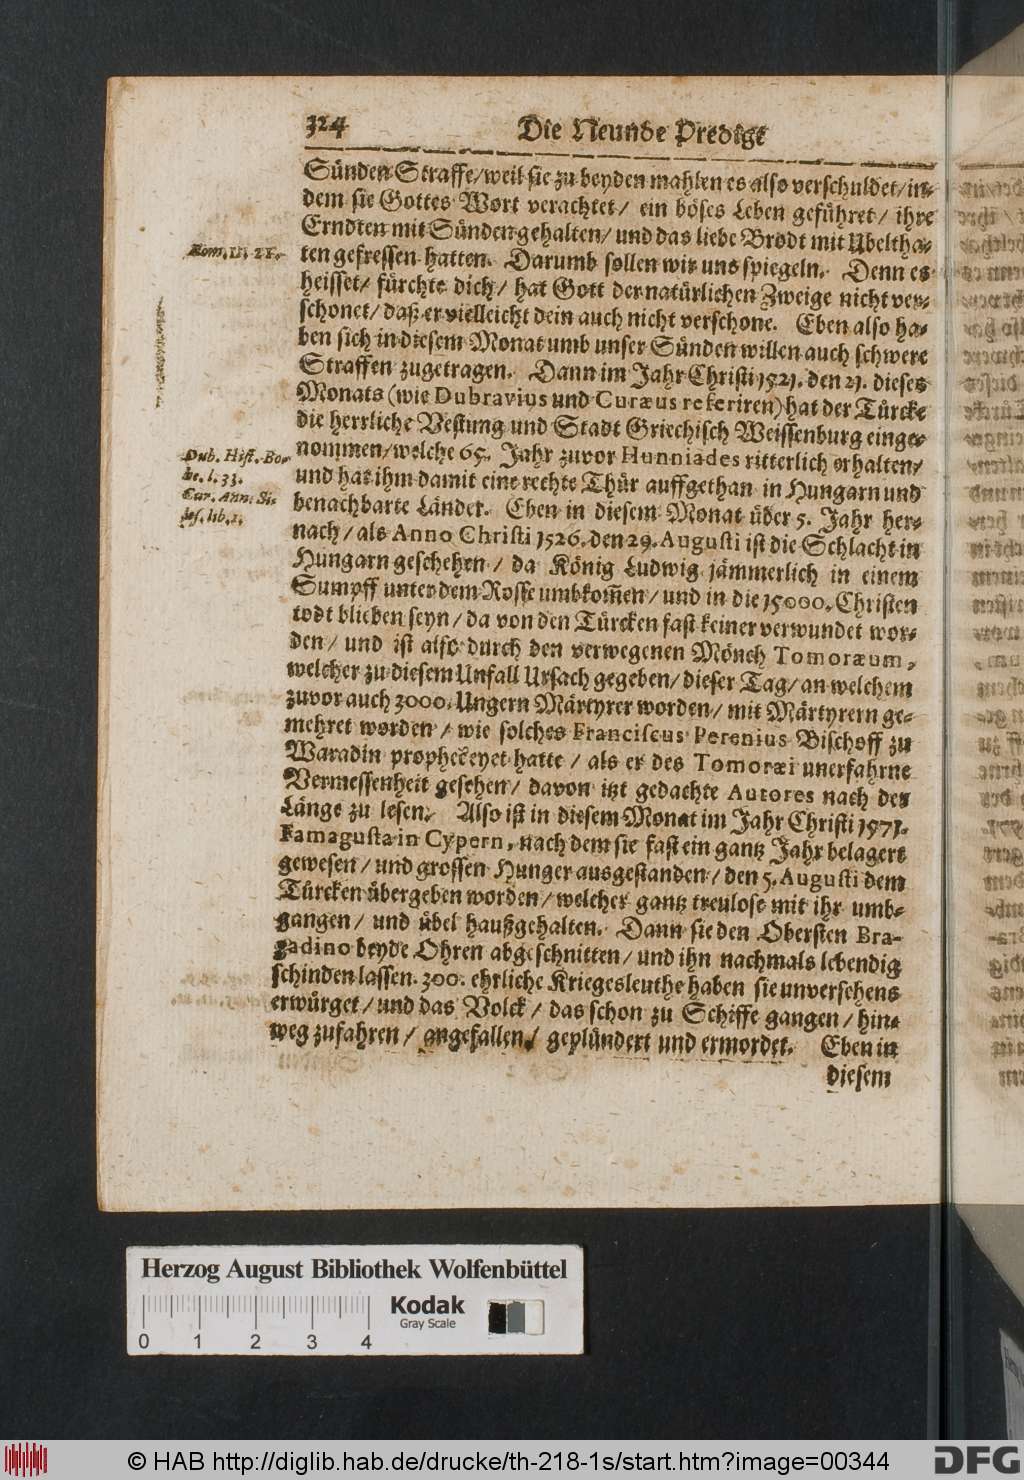 324 Die Neunde Predigt
Sünden Straffe/weil sie zu beyden mahlen es also verschuldet/in-
dem sie Gottes Wort verachtet/ ein böses Leben geführet/ ihre
Erndten mit Sünden gehalten/ und das liebe Brodt mit Ubeltha-
ten gefressen hatten. Darumb sollen wir uns spiegeln. Denn es
heisset/ fürchte dich/ hat Gott der natürlichen Zweige nicht ver-
schonet/ daß er vielleicht dein auch nicht verschone. Eben also ha-
ben sich in diesem Monat umb unser Sünden willen auch schwere
Straffen zugetragen. Dann im Jahr Christi 1521. den 21. dieses
Monats (wie Dubravius und Curæus referiren) hat der Türcke
die herrliche Vestung und Stadt Griechisch Weissenburg einge-
nommen/welche 65. Jahr zuvor Hunniades ritterlich erhalten/
und hat ihm damit eine rechte Thür auffgethan in Hungarn und
benachbarte Länder. Eben in diesem Monat über 5. Jahr her-
nach/ als Anno Christi 1526. den 29. Augusti ist die Schlacht in
Hungarn geschehen/ da König Ludwig jämmerlich in einem
Sumpff unter dem Rosse umbkom̃en/ und in die 15000. Christen
todt blieben seyn/ da von den Türcken fast keiner verwundet wor-
den/ und ist also durch den verwegenen Mönch Tomoræum,
welcher zu diesem Unfall Ursach gegeben/ dieser Tag/ an welchem
zuvor auch 3000. Ungern Märtyrer worden/ mit Märtyrern ge-
mehret worden/ wie solches Franciscus Perenius Bischoff zu
Waradin propheceyet hatte/ als er des Tomoræi unerfahrne
Vermessenheit gesehen/ davon itzt gedachte Autores nach der
Länge zu lesen. Also ist in diesem Monat im Jahr Christi 1571.
Famagusta in Cypern, nach dem sie fast ein gantz Jahr belagert
gewesen/ und grossen Hunger ausgestanden/ den 5. Augusti dem
Türcken übergeben worden/ welcher gantz treulose mit ihr umb-
gangen/ und übel haußgehalten. Dann sie den Obersten Bra-
gadino beyde Ohren abgeschnitten/ und ihn nachmals lebendig
schinden lassen. 300. ehrliche Kriegesleuthe haben sie unversehens
erwürget/ und das Volck/ das schon zu Schiffe gangen/ hin-
weg zufahren/ angefallen/ geplündert und ermordet. Eben in
diesem
Rom. 11. 21.
Dub. Hist. Bo-
he. l. 33.
Cur. Ann. Si-
les. lib. 1.
Herzog August Bibliothek Wolfenbüttel
Kodak
Gray Scale
0 1 2 3 4
© HAB http://diglib.hab.de/drucke/th-218-1s/start.htm?image=00344
DFG